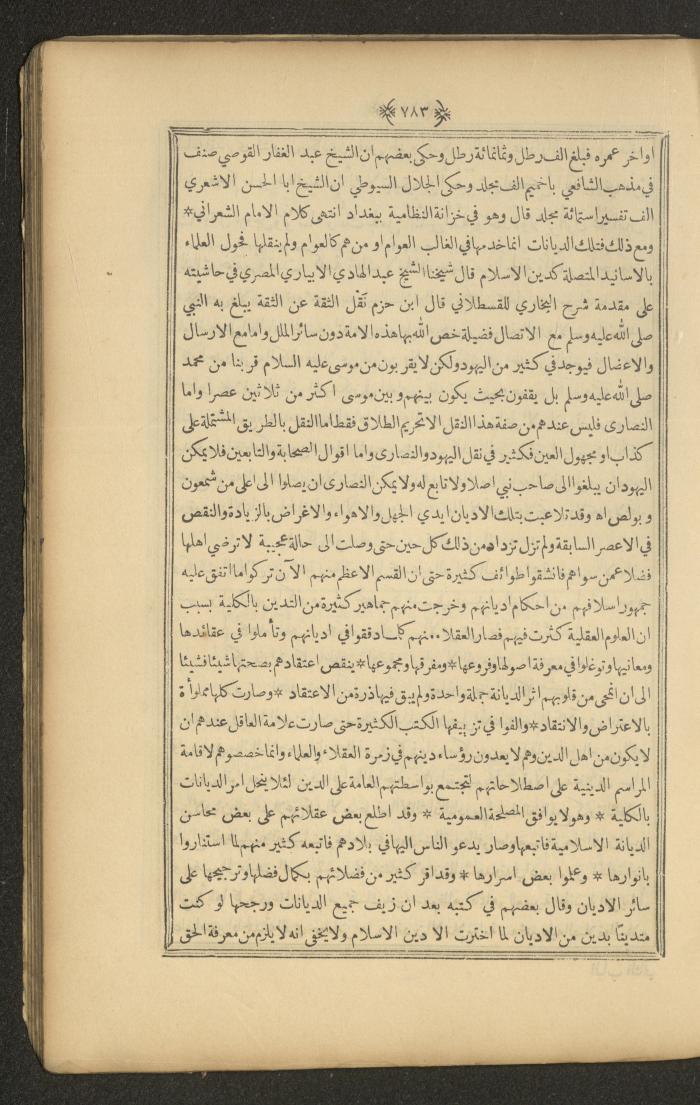 ﴿٧٨٣﴾
اواخر عمره فبلغ الف رطل وثمانمائة رطل وحكى بعضهم ان الشيخ عبد الغفار القوصي صنف
في مذهب الشافعي باخميم الف مجلد وحكى الجلال السيوطي ان الشيخ ابا الحسن الاشعري
الف تفسيرا ستمائة مجلد قال وهو في خزانة النظامية ببغداد انتهى كلام الامام الشعراني*
ومع ذلك فتلك الديانات انما خدمها في الغالب العوام او من هم كالعوام ولم ينقلها فحول العلماء
بالاسانيد المتصلة كدين الاسلام قال شيخنا الشيخ عبد الهادي الابياري المصري في حاشيته
على مقدمة شرح البخاري للقسطلاني قال ابن حزم نَقْل الثقة عن الثقة يبلغ به النبي
صلى الله عليه وسلم مع الاتصال فضيلة خص الله بها هذه الامة دون سائر الملل واما مع الارسال
والاعضال فيوجد في كثير من اليهود ولكن لا يقربون من موسى عليه السلام قربنا من محمد
صلى الله عليه وسلم بل يقفون بحيث يكون بينهم وبين موسى اكثر من ثلاثين عصرا واما
النصارى فليس عندهم من صفة هذا النقل الا تحريم الطلاق فقط اما النقل بالطريق المشتملة على
كذاب او مجهول العين فكثير في نقل اليهود والنصارى واما اقوال الصحابة والتابعين فلا يمكن
اليهود ان يبلغوا الى صاحب نبي اصلا ولا تابع له ولا يمكن النصارى ان يصلوا الى اعلى من شمعون
وبولص اه وقد تلاعبت بتلك الاديان ايدي الجهل والاهواء والاغراض بالزيادة والنقص
في الاعصر السابقة ولم تزل تزداد من ذلك كل حين حتى وصلت الى حالة عجيبة لا ترضي اهلها
فضلا عمن سواهم فانشقوا طوائف كثيرة حتى ان القسم الاعظم منهم الآن تركوا ما اتفق عليه
جمهور اسلافهم من احكام اديانهم وخرجت منهم جماهير كثيرة من التدين بالكلية بسبب
ان العلوم العقلية كثرت فيهم فصار العقلاء منهم كلما دققوا في اديانهم وتأملوا في عقائدها
ومعانيها وتوغلوا في معرفة اصولها وفروعها* ومفرقها ومجموعها* ينقص اعتقادهم بصحتها شيئا فشيئا
الى ان انمحى من قلوبهم اثر الديانة جملة واحدة ولم يبق فيها ذرة من الاعتقاد * وصارت كلها مملوأة
بالاعتراض والانتقاد* والفوا في تزييفها الكتب الكثيرة حتى صارت علامة العاقل عندهم ان
لا يكون من اهل الدين وهم لا يعدون رؤساء دينهم في زمرة العقلاء والعلماء وانما خصصوهم لاقامة
المراسم الدينية على اصطلاحاتهم لتجتمع بواسطتهم العامة على الدين لئلا ينحل امر الديانات
بالكلية * وهو لا يوافق المصلحة العمومية * وقد اطلع بعض عقلائهم على بعض محاسن
الديانة الاسلامية فاتبعها وصار يدعو الناس اليها في بلادهم فاتبعه كثير منهم لما استناروا
بانوارها * وعلموا بعض اسرارها * وقد اقر كثير من فضلائهم بكمال فضلها وترجيحها على
سائر الاديان وقال بعضهم في كتبه بعد ان زيف جميع الديانات ورجحها لو كنت
متدينًا بدين من الاديان لما اخترت الا دين الاسلام ولا يخفى انه لا يلزم من معرفة الحق